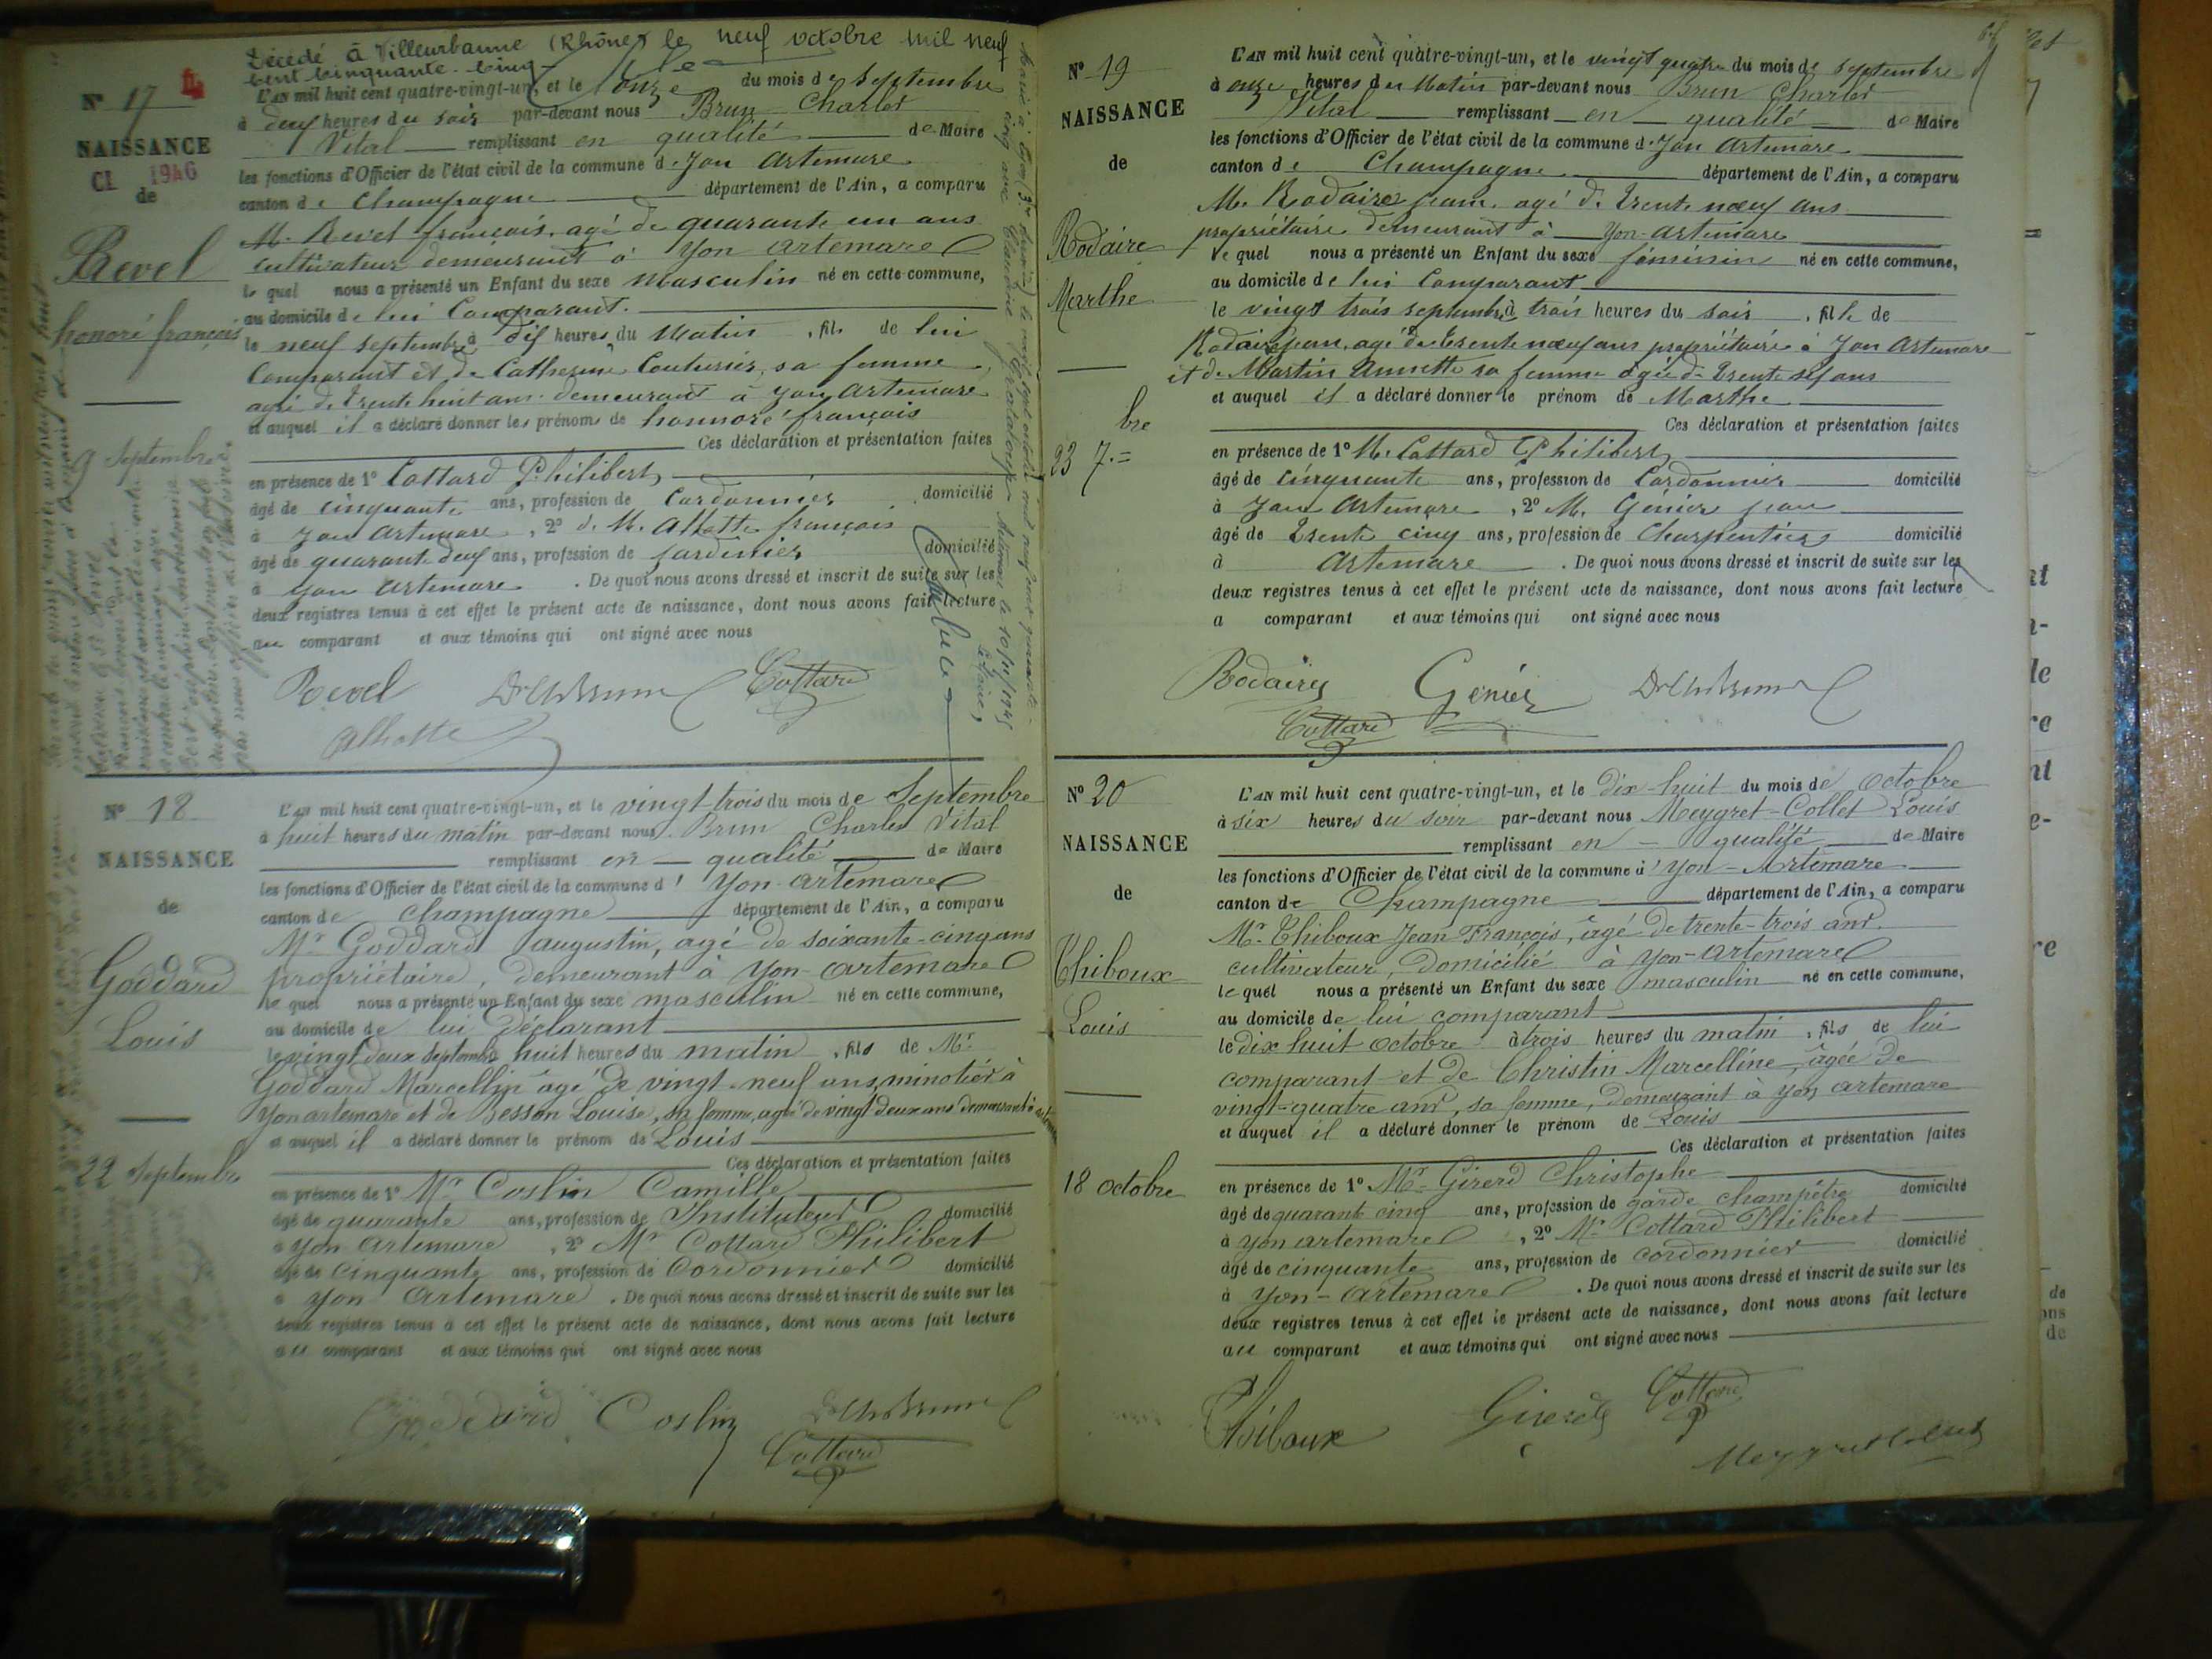 Décédé à Villeurbanne (Rhône) le neuf octobre mil neuf
cent cinquante-cinq
N° 17
NAISSANCE
CL 1946
de
Revel
honoré françois
9 Septembre
L'AN mil huit cent quatre-vingt-un, et le onze du mois de Septembre
à deux heures du soir par-devant nous Brun Charles
Vital remplissant en qualité de Maire
les fonctions d'Officier de l'état civil de la commune d'Yon Artemare
canton de Champagne département de l'Ain, a comparu
M. Revel françois, agé de quarante un ans
cultivateur demeurant à Yon artemare
le quel nous a présenté un Enfant du sexe masculin né en cette commune,
au domicile de lui Comparant.
le neuf septembre à dix heures du Matin , fils de lui
Comparant et de Catherine Couturier, sa femme,
agée de trente huit ans demeurant à yon artemare
et auquel il a déclaré donner les prénoms de honnoré françois
Ces déclaration et présentation faites
en présence de 1° Cottard Philibert
âgé de cinquante ans, profession de Cordonnier domicilié
à yon artemare , 2° d. M. Alhotte françois
âgé de quarant deux ans, profession de jardinier domicilié
à yon artemare . De quoi nous avons dressé et inscrit de suite sur les
deux registres tenus à cet effet le présent acte de naissance, dont nous avons fait lecture
au comparant et aux témoins qui ont signé avec nous
Revel Dr Ch Brun Cottard
Alhotte
N° 18
NAISSANCE
de
Goddard
Louis
22 Septembre
L'AN mil huit cent quatre-vingt-un, et le vingt-trois du mois de Septembre
à huit heures du matin par-devant nous Brun Charles Vital
remplissant en qualité de Maire
les fonctions d'Officier de l'état civil de la commune d'Yon-artemare
canton de Champagne département de l'Ain, a comparu
Mr Goddard augustin, agé de soixante-cinq ans
propriétaire, demeurant à Yon-artemare
le quel nous a présenté un Enfant du sexe masculin né en cette commune,
au domicile de lui déclarant
le vingt deux septembre à huit heures du matin , fils de Mr
Goddard Marcellin agé de vingt-neuf ans, minotier à
Yon artemare et de Besson Louise, sa femme, agée de vingt deux ans demeurant à artemare
et auquel il a déclaré donner le prénom de Louis
Ces déclaration et présentation faites
en présence de 1° Mr Coslin Camille
âgé de quarante ans, profession de Instituteur domicilié
à yon artemare , 2° Mr Cottard Philibert
âgé de cinquante ans, profession de Cordonnier domicilié
à yon artemare . De quoi nous avons dressé et inscrit de suite sur les
deux registres tenus à cet effet le présent acte de naissance, dont nous avons fait lecture
au comparant et aux témoins qui ont signé avec nous
Goddard Coslin Dr Ch Brun
Cottard
N° 19
NAISSANCE
de
Rodaire
Marthe
23 7.bre
L'AN mil huit cent quatre-vingt-un, et le vingt quatre du mois de septembre
à onze heures du Matin par-devant nous Brun Charles
Vital remplissant en qualité de Maire
les fonctions d'Officier de l'état civil de la commune d'Yon Artemare
canton de Champagne département de l'Ain, a comparu
M. Rodaire jean. agé de trente neuf ans
propriétaire demeurant à Yon-artemare
le quel nous a présenté un Enfant du sexe féminin né en cette commune,
au domicile de lui Comparant
le vingt trois septembre à trois heures du soir , fille de
Rodaire jean, agé de trente neuf ans propriétaire à Yon Artemare
et de Martin Annette sa femme agée de trente six ans
et auquel il a déclaré donner le prénom de Marthe
Ces déclaration et présentation faites
en présence de 1° M. Cottard Philibert
âgé de cinquante ans, profession de Cordonnier domicilié
à Yon Artemare , 2° M. Génier jean
âgé de trente cinq ans, profession de Charpentier domicilié
à Artemare . De quoi nous avons dressé et inscrit de suite sur les
deux registres tenus à cet effet le présent acte de naissance, dont nous avons fait lecture
a comparant et aux témoins qui ont signé avec nous
Rodaire Génier Dr Ch Brun
Cottard
N° 20
NAISSANCE
de
Thiboux
Louis
18 octobre
L'AN mil huit cent quatre-vingt-un, et le dix-huit du mois de Octobre
à six heures du soir par-devant nous Meygret-Collet Louis
remplissant en qualité de Maire
les fonctions d'Officier de l'état civil de la commune d'Yon-Artemare
canton de Champagne département de l'Ain, a comparu
Mr Thiboux Jean François, agé de trente-trois ans.
cultivateur, domicilié à Yon-artemare
le quel nous a présenté un Enfant du sexe masculin né en cette commune,
au domicile de lui comparant
le dix huit octobre à trois heures du matin , fils de lui
comparant et de Christin Marcelline, agée de
vingt-quatre ans, sa femme, demeurant à yon artemare
et auquel il a déclaré donner le prénom de Louis
Ces déclaration et présentation faites
en présence de 1° Mr Girerd Christophe
âgé de quarante cinq ans, profession de garde champêtre domicilié
à yon artemare , 2° Mr Cottard Philibert
âgé de cinquante ans, profession de cordonnier domicilié
à Yon-artemare . De quoi nous avons dressé et inscrit de suite sur les
deux registres tenus à cet effet le présent acte de naissance, dont nous avons fait lecture
au comparant et aux témoins qui ont signé avec nous
Thiboux Girerd Cottard
Meygret Collet